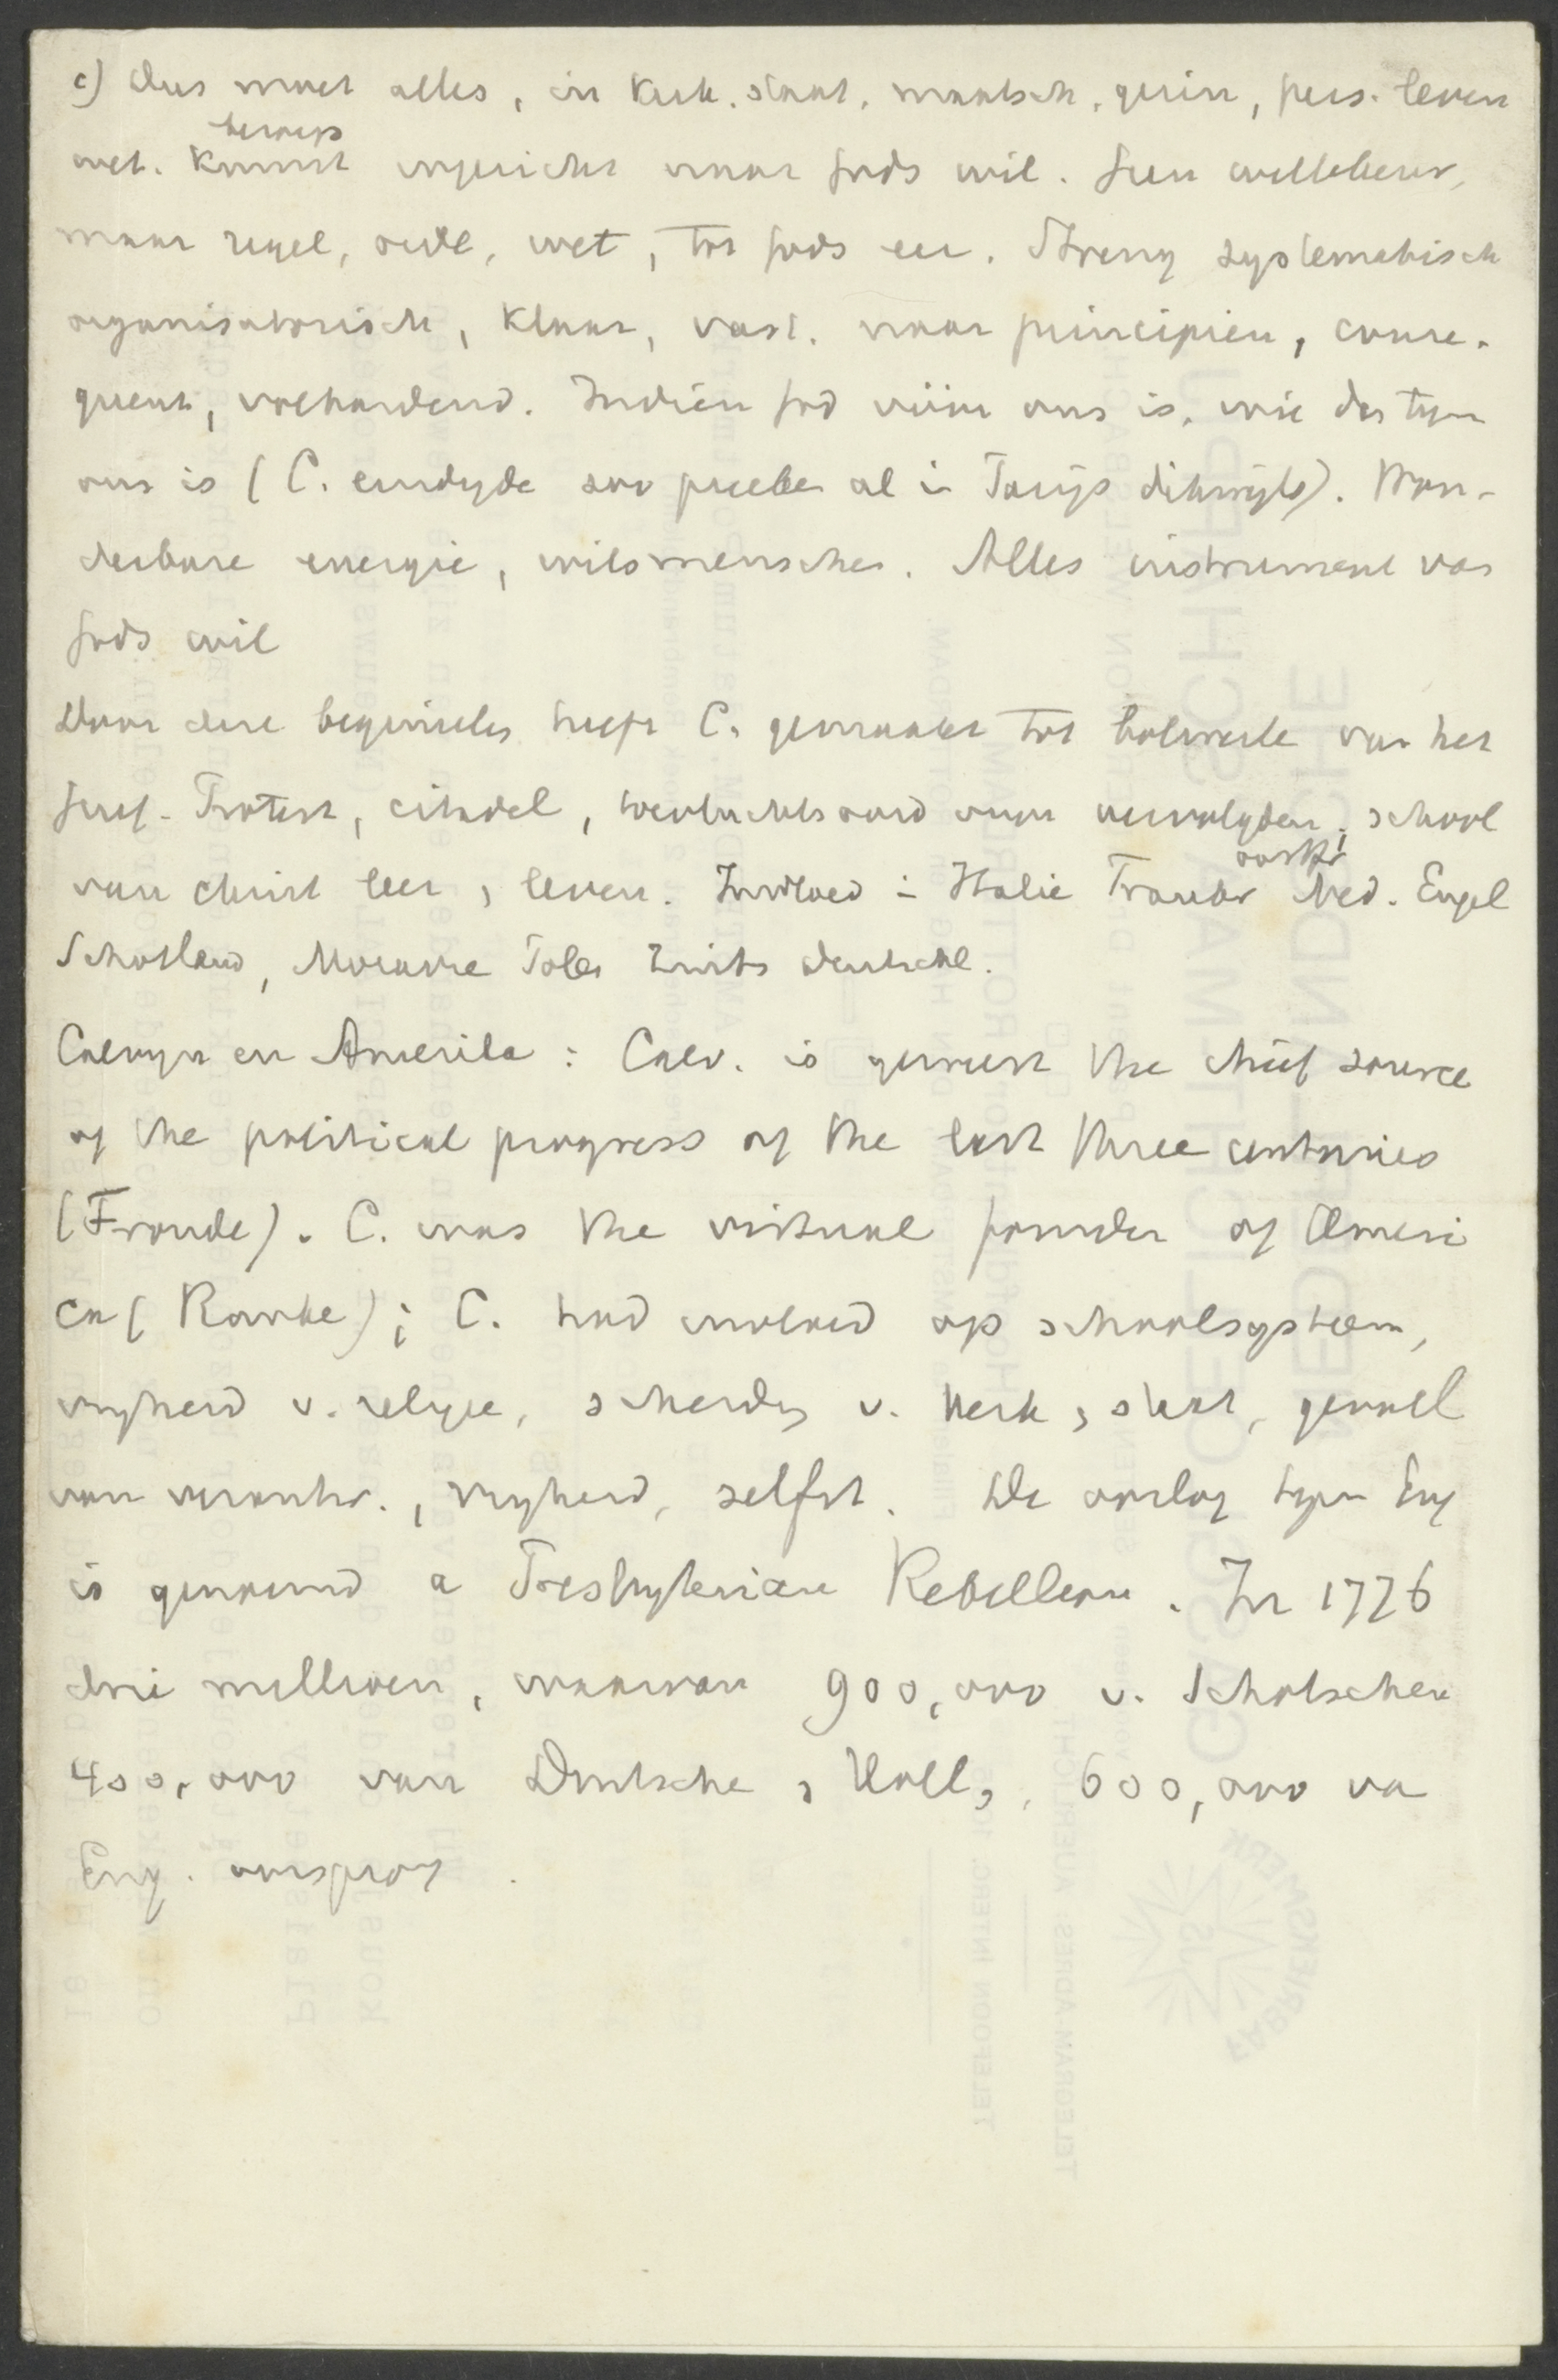 c) Dus moet alles, in Kerk. staat, maatsch, gezin, pers. leven
beroep
wet. Kunst ingericht naar Gods wil. Geen willekeur,
maar regel, orde, wet, tot Gods eer. Streng systematisch
organisatorisch, klaar, vast. naar principien, conse-
quent, volhardend. Indien God vóór ons is, wie dan tegen
ons is (C. eindigde zoo preeken al in Parijs dikwijls). Won-
derbare energie, wilsmenschen. Alles instrument van
Gods wil
Door deze beginselen heeft C. gemaakt tot bolwerk van het
Geref. Protest, citadel, toevluchtsoord voor vervolgden, school
van Christ leer, leven. Invloed in Italie Frankr Ned. Engel
oostfr
Schotland, Moravie Polen Zwits Deutschl.
Calvyn en Amerika: Calv. is geweest the chief source
of the political progress of the last three centuries
(Froude). C. was the virtual founder of Ameri
ca (Ranke); C. had invloed op schoolsysteem,
vryheid v. religie, scheiding v. Kerk, staat, gevoel
van verantw., vryheid, zelfst. De oorlog tegen Eng
is genoemd a Presbyterian Rebellion. In 1776
drie millioen, waarvan 900,000 v. Schotschen
400,000 van Duitsche, Holl, 600,000 van
Eng. oorsprong.